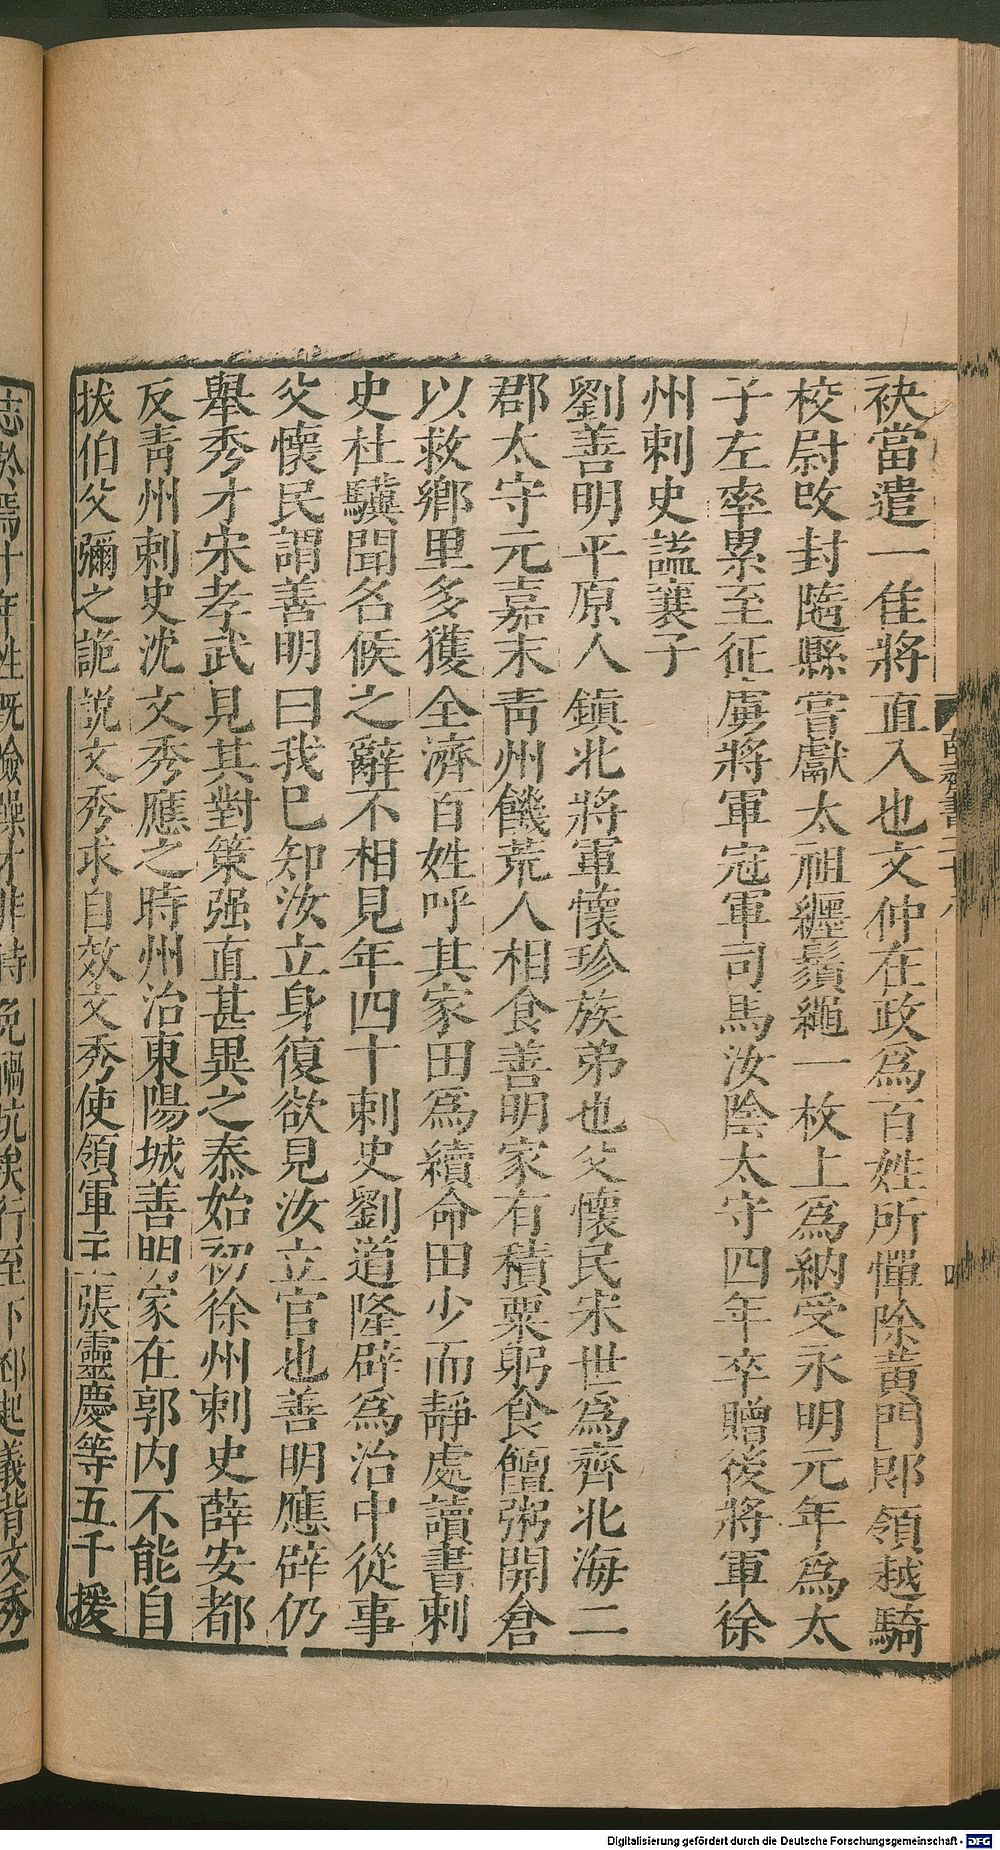 袂當遣一隹將直入也文仲在政爲百姓所憚除黃門郎領越騎
校尉改封隨縣嘗獻太祖纒鬚繩一枚上爲納受永明元年爲太
子左率累至征虜將軍冠軍司馬汝陰太守四年卒贈後將軍徐
州刺史謚襄子
劉善明平原人鎮北將軍懷珍族弟也父懷民宋世爲齊北海二
郡太守元嘉末青州饑荒人相食善明家有積粟躬食饘粥開倉
以救鄉里多獲全濟百姓呼其家田爲續命田少而靜處讀書刺
史杜驥聞名候之辭不相見年四十刺史劉道隆辟爲治中從事
父懷民謂善明曰我已知汝立身復欲見汝立官也善明應辟仍
舉秀才宋孝武見其對策强直甚異之泰始初徐州刺史薛安都
反青州刺史沈文秀應之時州治東陽城善明家在郭内不能自
拔伯父彌之詭說文秀求自效文秀使領軍主張靈慶等五千援
Digitalisierung gefördert durch die Deutsche Forschungsgemeinschaft - DFG